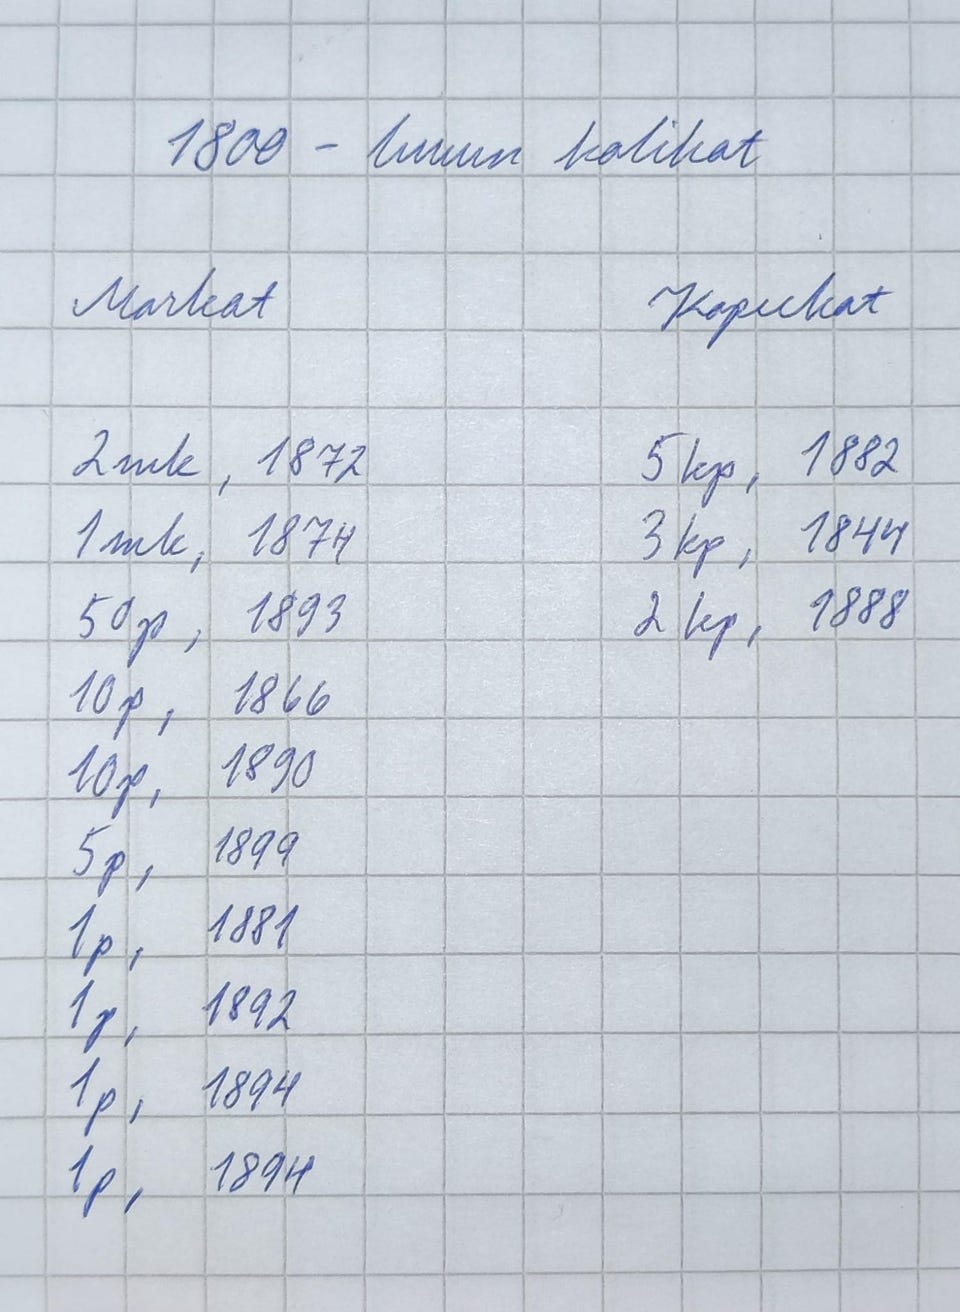 1800 - luvun kolikat
Markat
Kopeekat
2mk, 1872
1mk, 1874
50p, 1893
10p, 1866
10p, 1890
5p, 1899
1p, 1881
1p, 1892
1p, 1894
1p, 1894
5kp, 1882
3kp, 1844
2kp, 1888